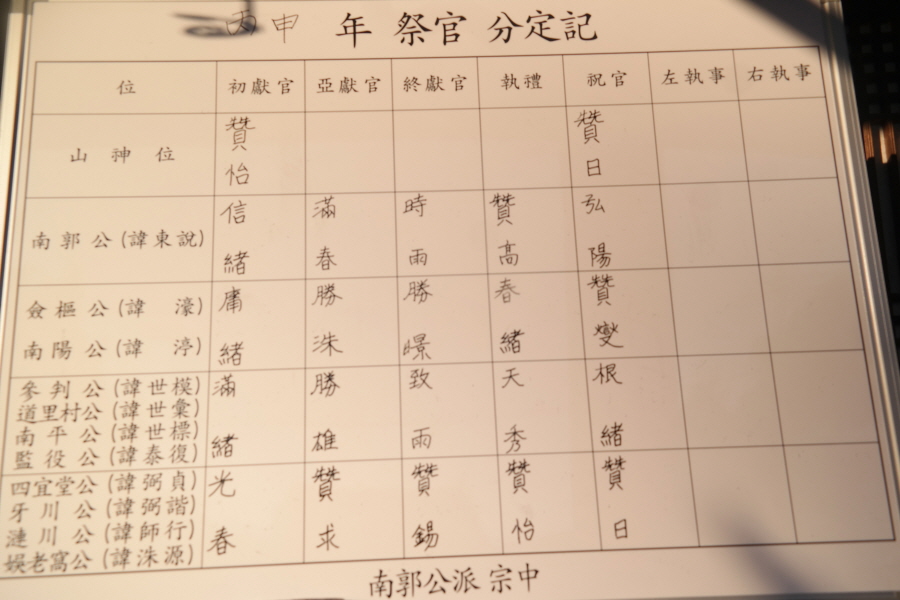 丙申 年 祭官 分定記
位 初獻官 亞獻官 終獻官 執禮 祝官 左執事 右執事
山神位 贊怡 贊日
南郭公(諱東說) 信緒 滿春 時雨 贊高 弘陽
僉樞公(諱 濠) 庸緒 勝洙 勝暻 春緒 贊燮
南陽公(諱 渟)
參判公(諱世模) 滿緒 勝雄 致雨 天秀 根緒
道里村公(諱世彙)
南平公(諱世標)
監役公(諱泰復)
四宜堂公(諱弼貞) 光春 贊求 贊錫 贊怡 贊日
牙川公(諱弼諧)
漣川公(諱師行)
娛老窩公(諱洙源)
南郭公派 宗中